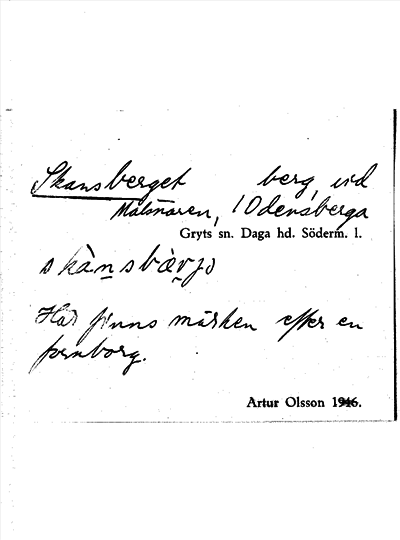 Skansberget berg, vid
Målsnaren, Odensberga
Gryts sn. Daga hd. Söderm. l.
Här finns märken efter en
fornborg.
Artur Olsson 1946.